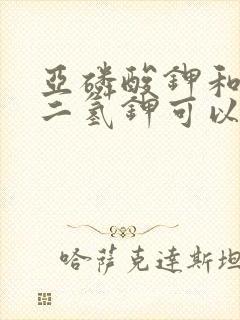 亞磷酸鉀和
二氢鉀可以
哈萨克達斯坦